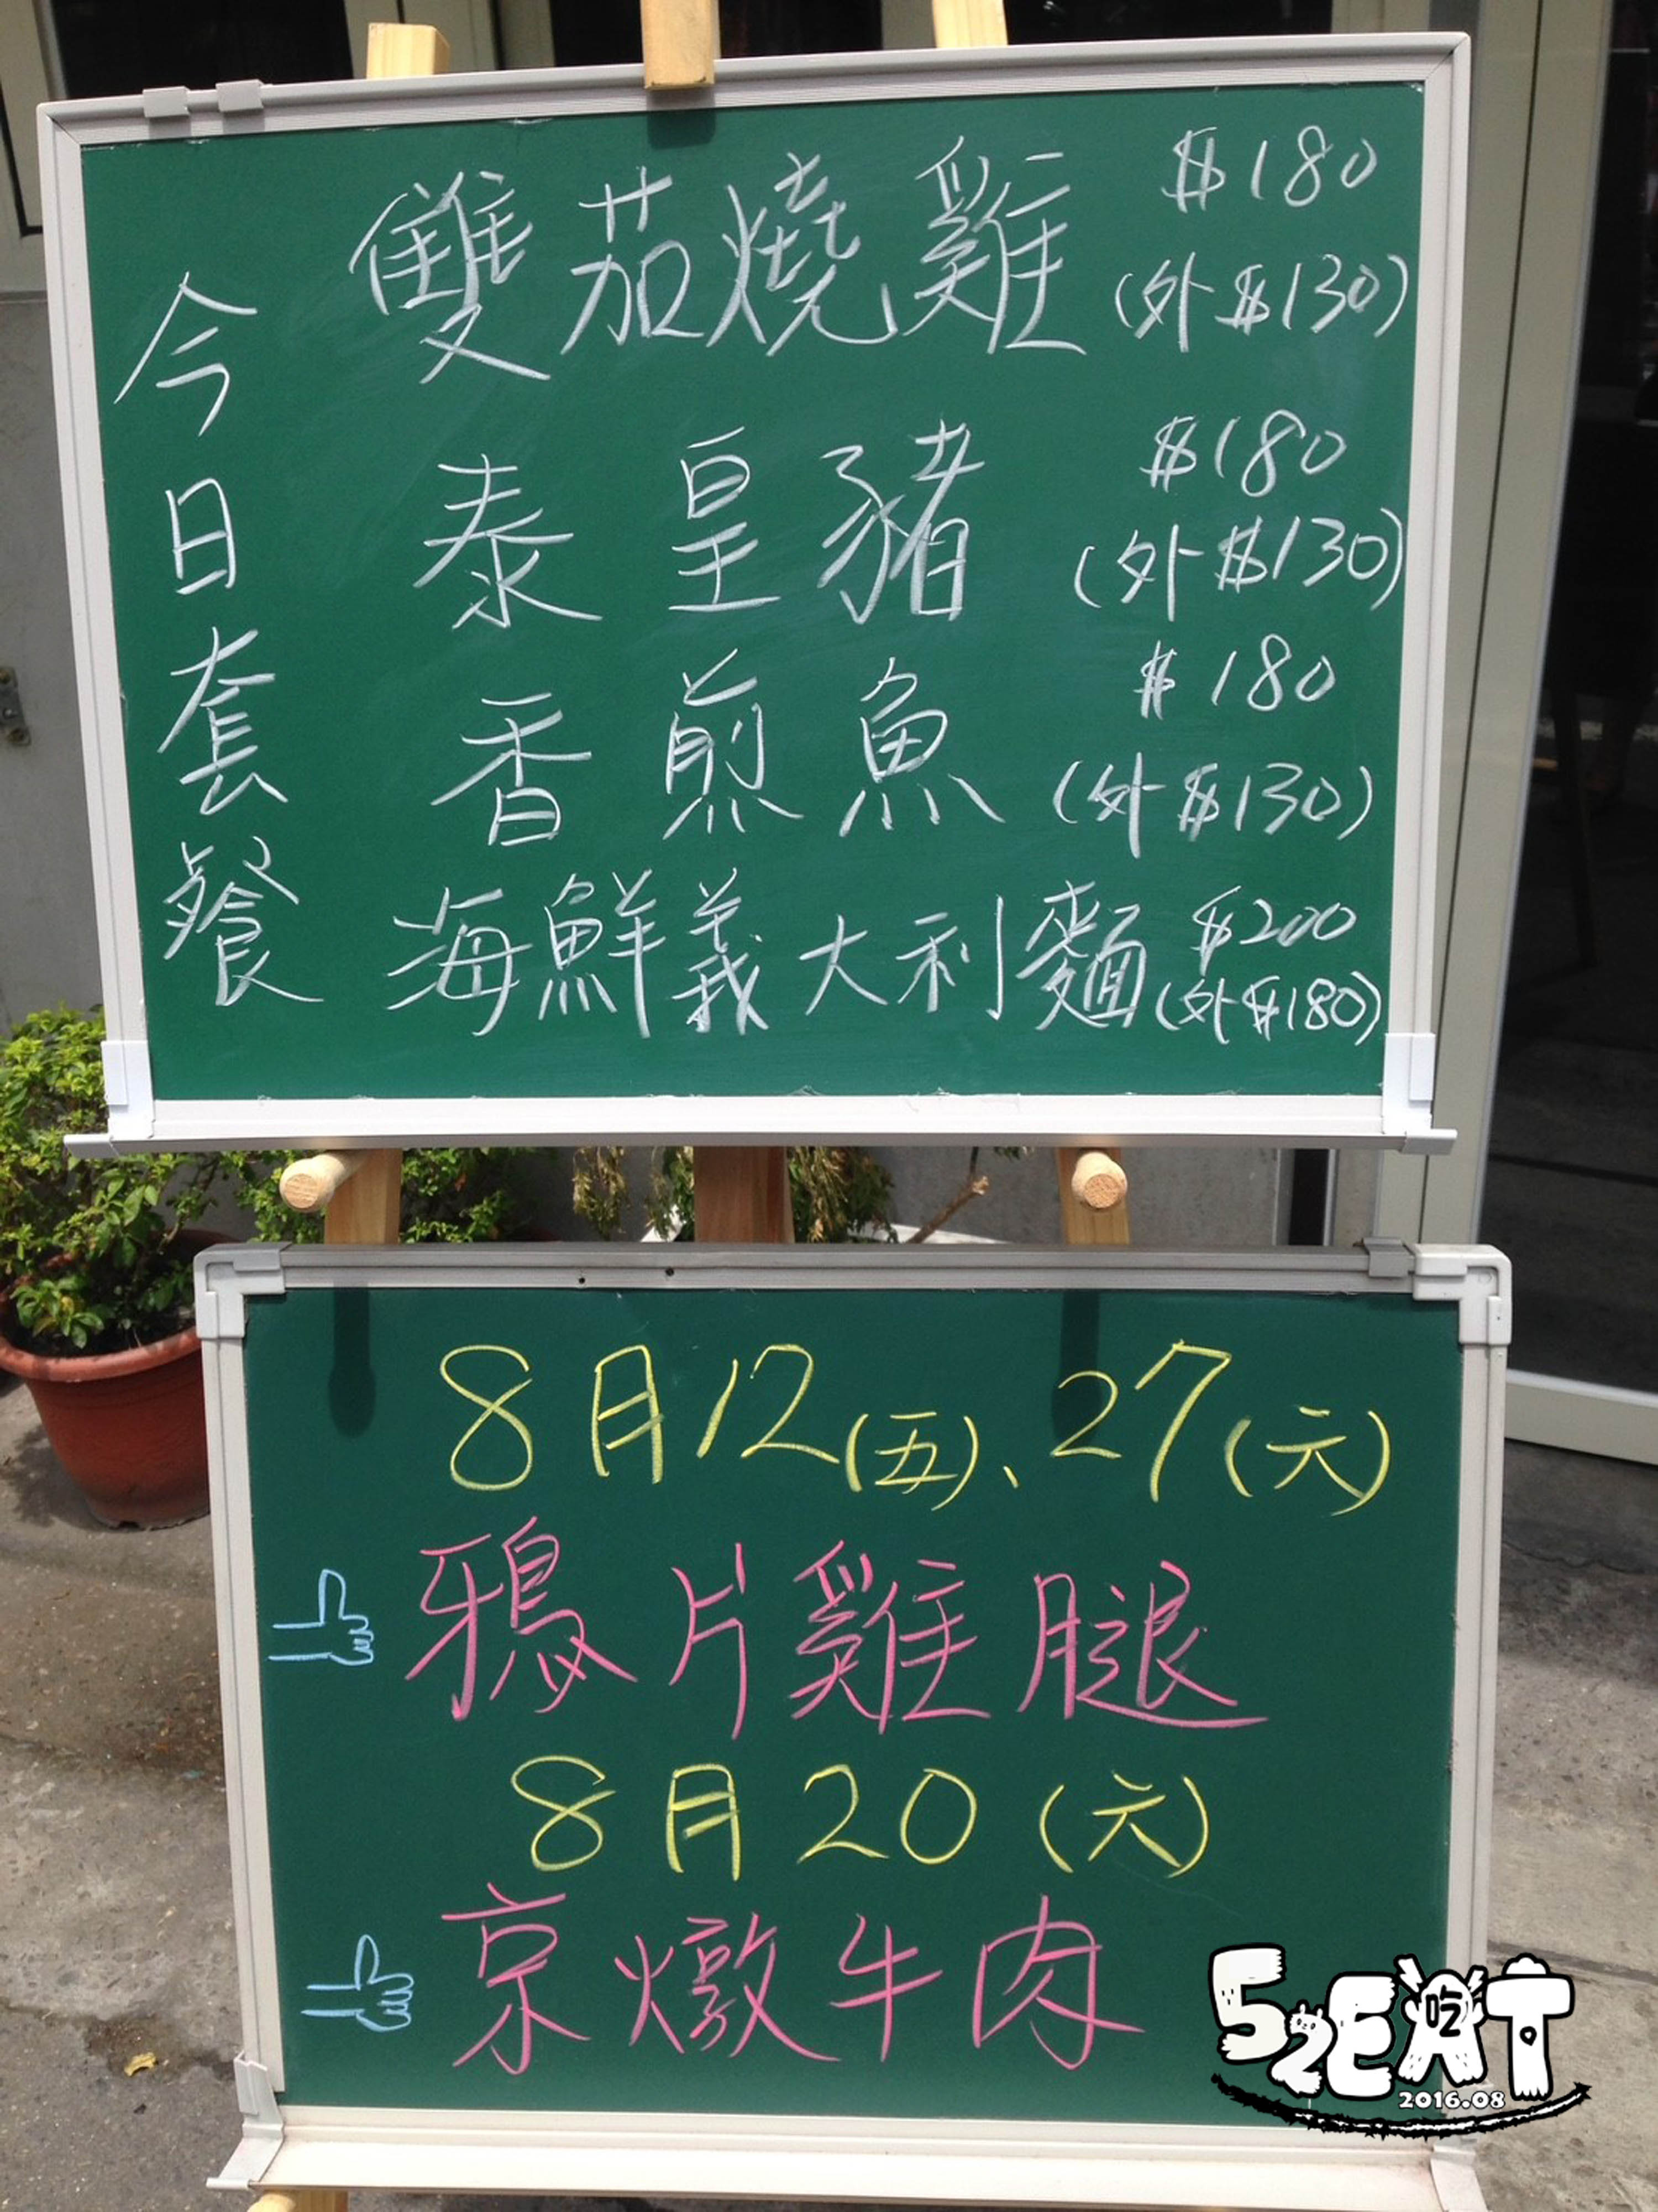 今日套餐
雙茄燒雞 $180
(外$130)
泰皇豬 $180
(外$130)
香煎魚 $180
(外$130)
海鮮義大利麵 $200
(外$180)
8月12(五)、27(六)
鴉片雞腿
8月20(六)
京燉牛肉
52EAT
吃
2016.08